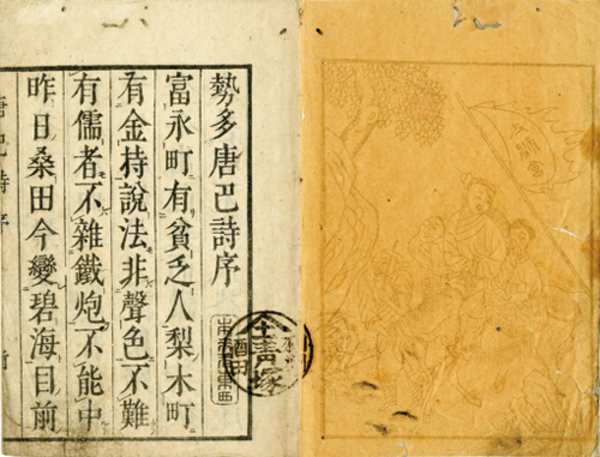 勢多唐巴詩序
富永町有貧乏人梨木町
有金持說法非聲色不難
有儒者不雜鐵炮不能中
昨日桑田今變碧海目前
唐巴詩序